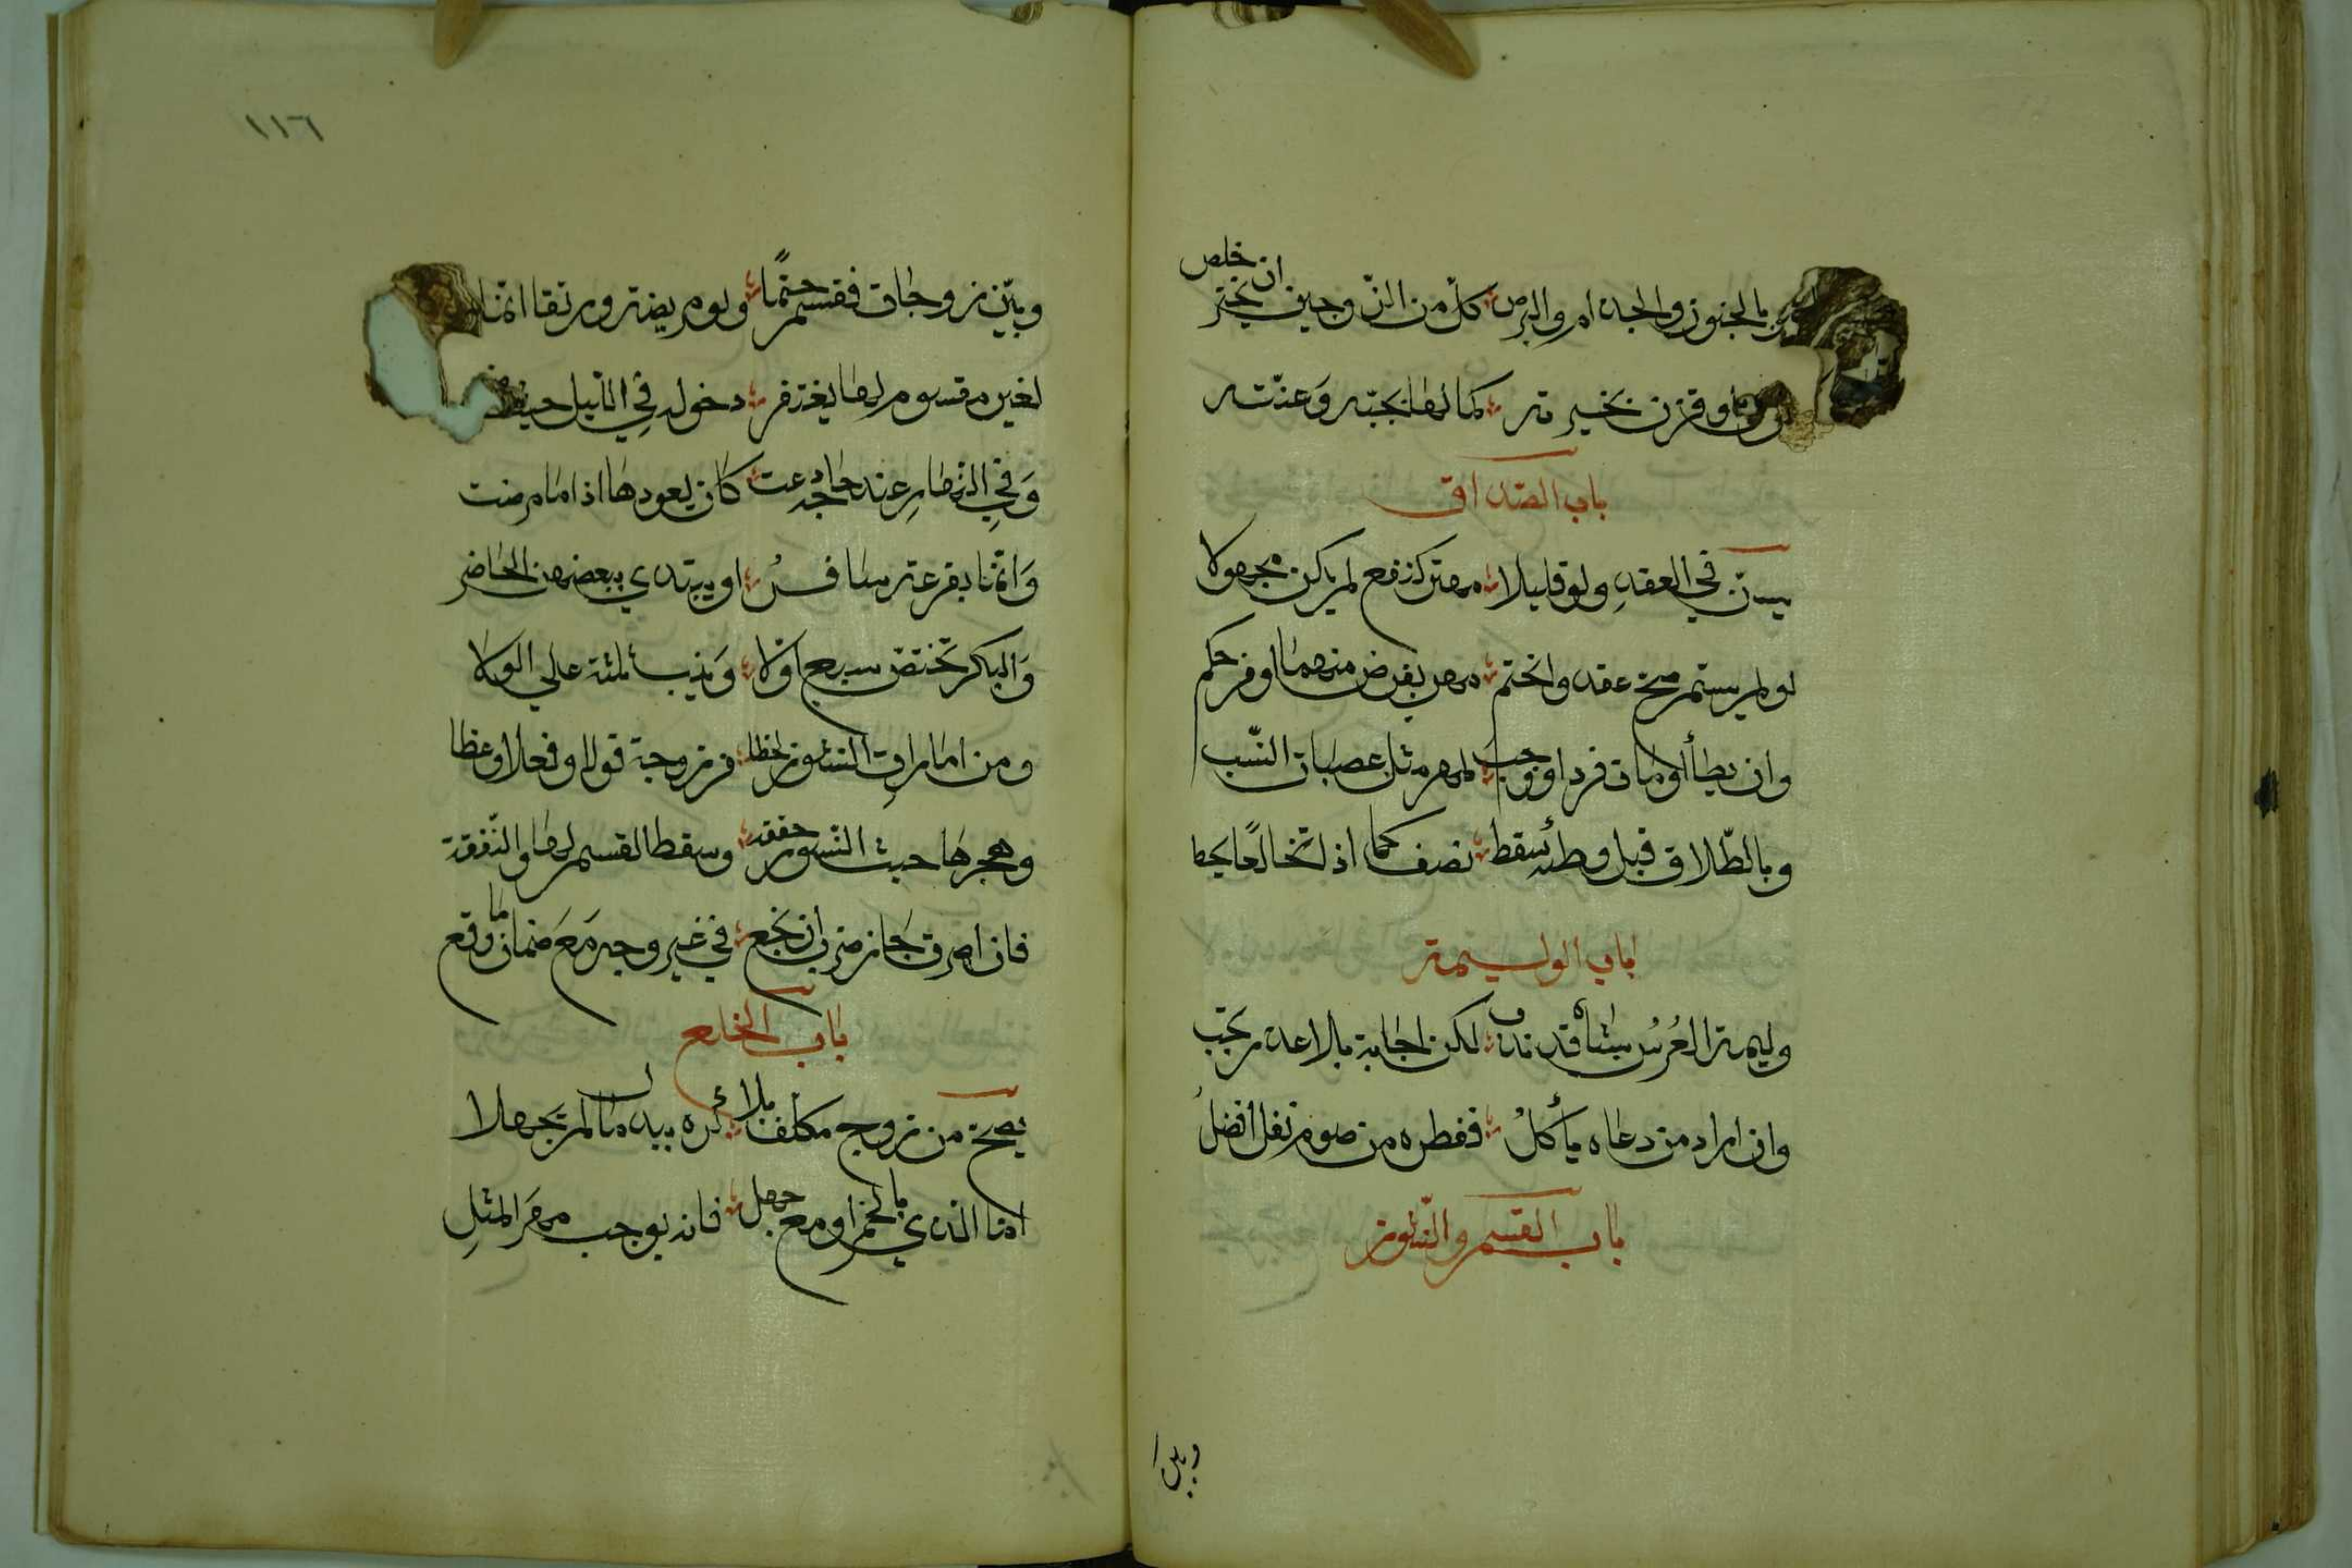 بالجنون والجذام والبرص كل من الزوجين ان يختر خلص
او قرن بخيرته كما لها بجبه وعنته
باب الصداق
يسن في العقد ولو قليلا مهر كنفع لم يكن مجهولا
لو لم يسم صح عقد وانحتم مهر بفرض منهما او من حكم
وان يطأ او مات فرد اوجب لمهر مثل عصبات النسب
وبالطلاق قبل وطئه سقط نصف كما اذا تخالعا يحط
باب الوليمة
وليمة العرس بشاة قد ندب لكن اجابة بلا عذر تجب
وان اراد من دعاه يأكل ففطره من صوم نفل افضل
باب القسم والنشوز
وبين
١١٦
وبين زوجات فقسم حتما ولو مريضة ورتقا انما
لغير مقسوم لها يغتفر دخوله في الليل حيث
وفي النهار عند حاجة دعت كان يعودها اذا ما مرضت
وانما بقرعة يسافر او يبتدي ببعضهن الحاضر
والبكر تختص بسبع اولا وثيب ثلثة على الولا
ومن امارات النشوز لحظا من زوجة قولا وفعلا وعظا
وهجرها حيث النشوز حققه وسقط القسم لها والنفقة
فان اصرت جاز ضرب ان نجع في غير وجه مع ضمان ما وقع
باب الخلع
يصح من زوج مكلف بلا كره ببذل ما لم يجهلا
اما الذي بالخمر او مع جهل فانه يوجب مهر المثل